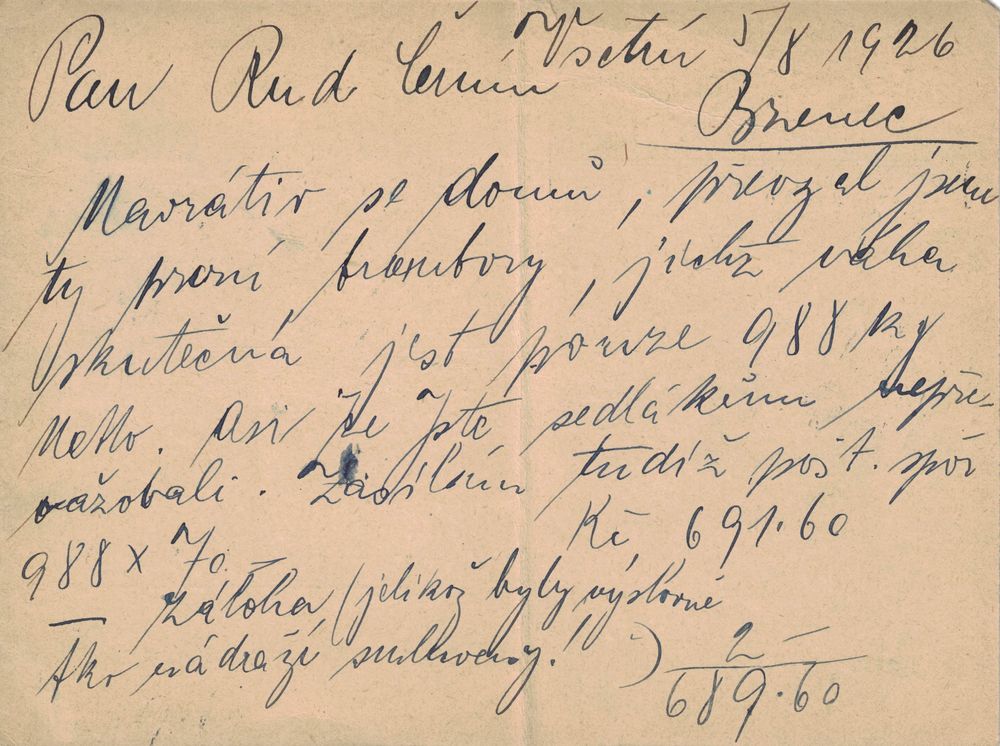 Vsetín 5/8 1926
Pan Rud Černín
Bzenec
Navrátiv se domů, převzal jsem
ty první brambory, jichž váha
skutečná jest pouze 988 kg
netto. Asi že jste sedlákům nepře-
vážovali. Zasílám tudíž pošt. spoř
Kč 691.60
988 x 70
— záloha (jelikož byly výslovně
fko nádraží smluveny!) 2 —
689.60